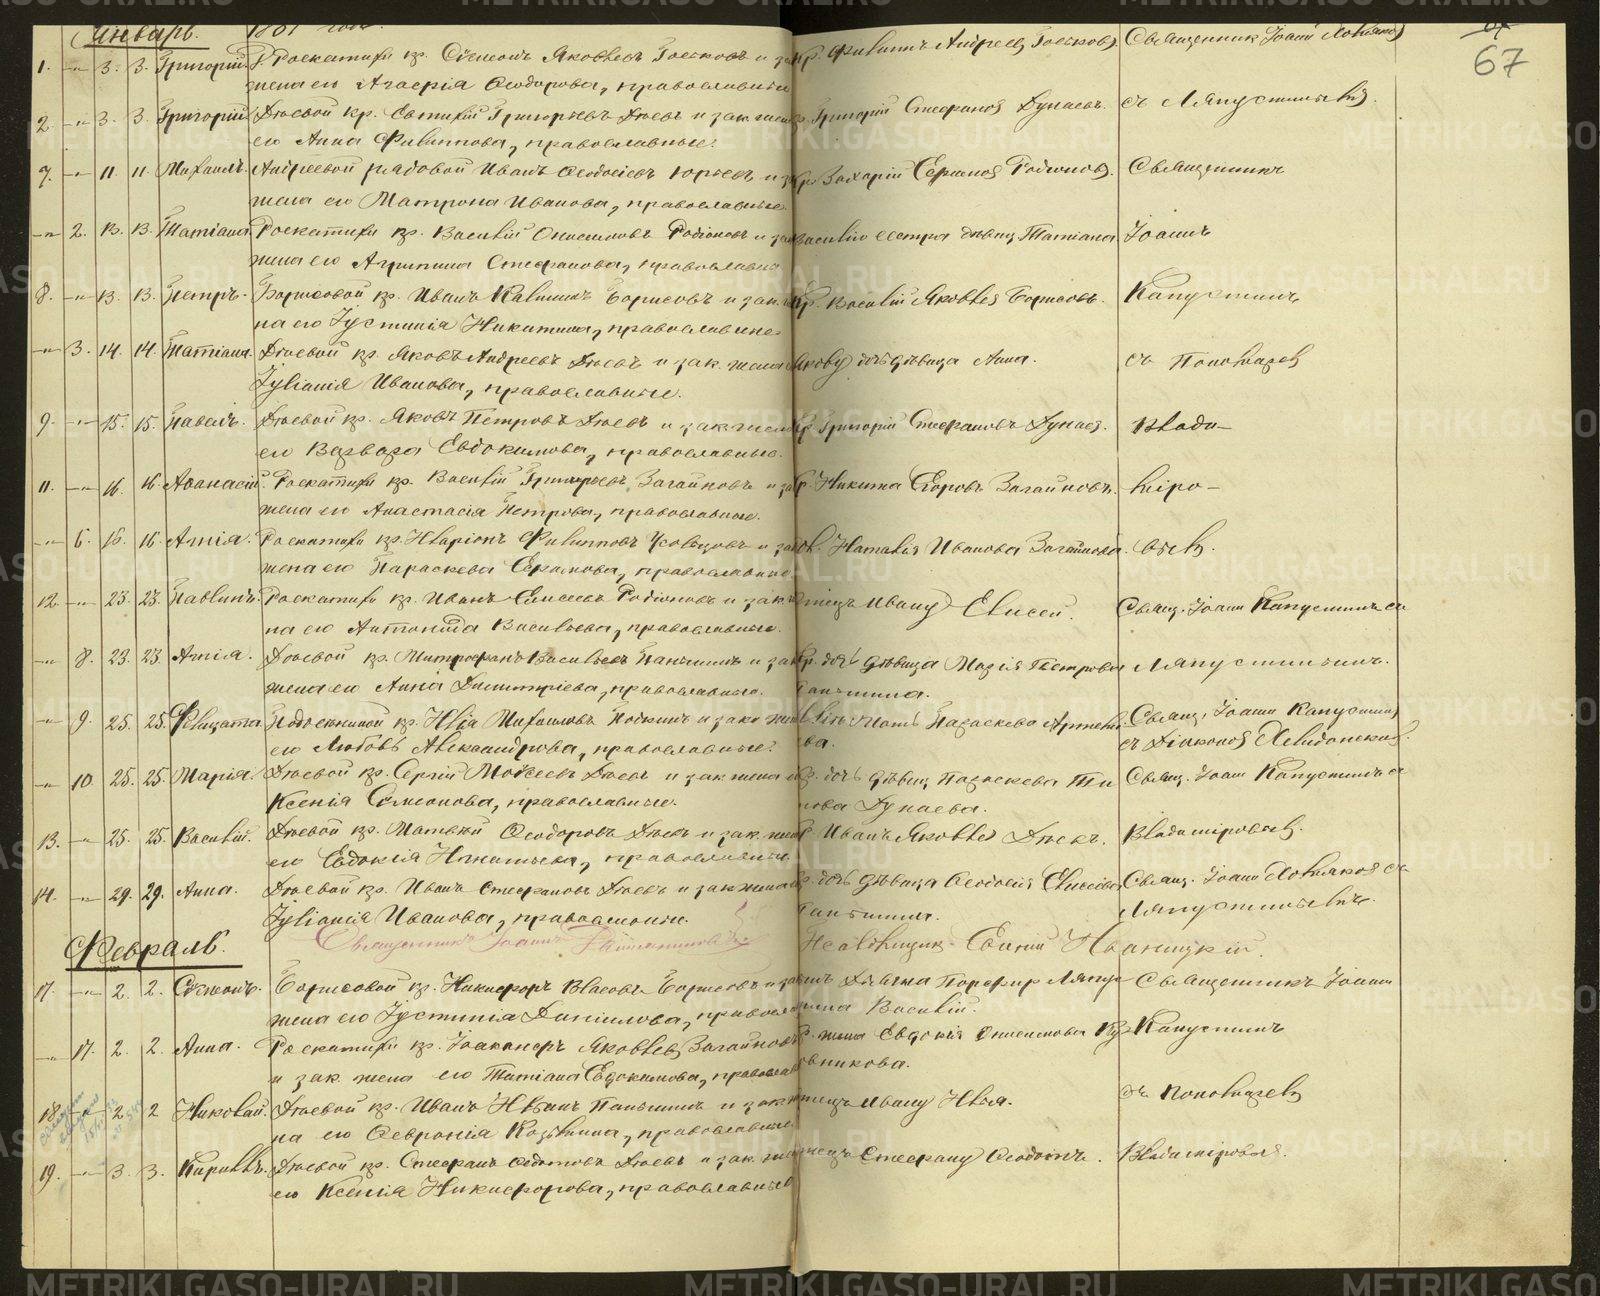 Январь. 1881 года
67
1. -"- 3. 3. Григорий. Роскатихи кр. Сѵмеонъ Яковлевъ и зак.
жена его Агаѳія Ѳеодорова, православные
кр. Филиппъ Андреевъ
Священник Іоаннъ
2. -"- 3. 3. Григорий. Зюевой кр. Евтихій Григорьевъ Зюевъ и зак. жена
его Анна Филиппова, православные.
кр. Григорій Стефановъ Дунаевъ.
съ Ляпустинымъ.
7. -"- 11. 11. Михаилъ. Андреевой рядовой Иванъ Ѳеодосіевъ Юрьевъ и
жена его Матрона Иванова, православные
кр. Захарій Родіоновъ.
Священникъ
-"- 2. 13. 13. Татіана. Роскатихи кр. Василій Онисимовъ Родіоновъ и зак.
жена его Агрипина Стефанова, православн.
Василію сестра дѣвица Татіана
Іоаннъ
8. -"- 13. 13. Петръ. Борисовой кр. Иванъ Калининъ Борисовъ и зак. же
на его Іустинія Никитина, православные
кр. Василій Яковлевъ Борисовъ.
Капустинъ
-"- 3. 14. 14. Татіана. Зюевой кр. Яковъ Андреевъ Зюевъ и зак. жена
Іуліанія Иванова, православные.
Якову дочь дѣвица Анна.
съ Пономаревъ
9. -"- 15. 15. Павелъ. Зюевой кр. Яковъ Петровъ Зюевъ и зак. жена
его Варвара Евдокимова, православные.
кр. Григорій Стефановъ Дунаев.
Влади-
11. -"- 16. 16. Аѳанасій. Роскатихи кр. Василій Григорьевъ Загайновъ и зак.
жена его Анастасія Петрова, православные.
кр. Никита Егоровъ Загайновъ.
міро-
-"- 6. 16. 16. Агнія. Роскатихи кр. Иларіонъ Филипповъ и зак.
жена его Параскева православные
Наталія Иванова Загайнова.
вымъ.
12. -"- 23. 23. Павлинъ. Роскатихи кр. Иванъ Елисеевъ Родіоновъ и зак. же
на его Антонина Васильева, православные.
отецъ Ивану Елисей.
Свящ. Іоаннъ Капустинъ съ
-"- 8. 23. 23. Агнія. Зюевой кр. Митрофанъ Васильевъ Паньшинъ и зак.
жена его Анна Димитріева, православные.
кр. дочь дѣвица Марія Петрова
Паньшина.
Ляпустинымъ.
-"- 9. 25. 25. кр. Илія Михаиловъ и зак. жена
его Любовь Александрова, православные.
Иліи мать Параскева
ва.
Свящ. Іоаннъ Капустинъ
съ Діакономъ
-"- 10. 25. 25. Марія. Зюевой кр. Сергій Моѵсеевъ Зюевъ и зак. жена его
Ксенія Сѵмеонова, православные.
кр. дочь дѣвица Параскева Ти
нова Дунаева.
Свящ. Іоаннъ Капустинъ съ
13. -"- 25. 25. Василій. Зюевой кр. Матвѣй Ѳеодоровъ Зюевъ и зак. жена
его Евдокія Игнатьева, православные
кр. Иванъ Яковлевъ Зюевъ.
Владиміровымъ.
14. -"- 29. 29. Анна. Зюевой кр. Иванъ Стефановъ Зюевъ и зак. жена
Іуліанія Иванова, православные.
кр. дочь дѣвица Ѳеодосія Елисеева
Паньшина.
Свящ. Іоаннъ съ
Ляпустинымъ.
Февраль.
Священникъ Іоаннъ
Псаломщикъ
17. -"- 2. 2. Сѵмеонъ. Борисовой кр. Никифоръ Власовъ Борисовъ и зак.
жена его Іустинія Даніилова, православ
сынъ Діакона Порфир Ляпус
тина Василій.
Священникъ Іоаннъ
-"- 17. 2. 2. Анна. Роскатихи кр. Іоакимъ Яковлевъ Загайновъ
и зак. жена его Татіана Евдокимова, православ
кр. жена Евдокія Онисимова Ку
вникова.
Капустинъ
18. -"- 2. 2 Николай. Зюевой кр. Иванъ Ильинъ Паньшинъ и зак. же
на его Ѳевронія Козьмина, православные
отецъ Ивану Илья.
съ Пономаревъ
19. -"- 3. 3. Кириллъ. Зюевой кр. Стефанъ Ѳедотовъ Зюевъ и зак. жена
его Ксенія Никифорова, православные
отецъ Стефану Ѳеодотъ.
Владиміровымъ.
METRIKI.GASO-URAL.RU